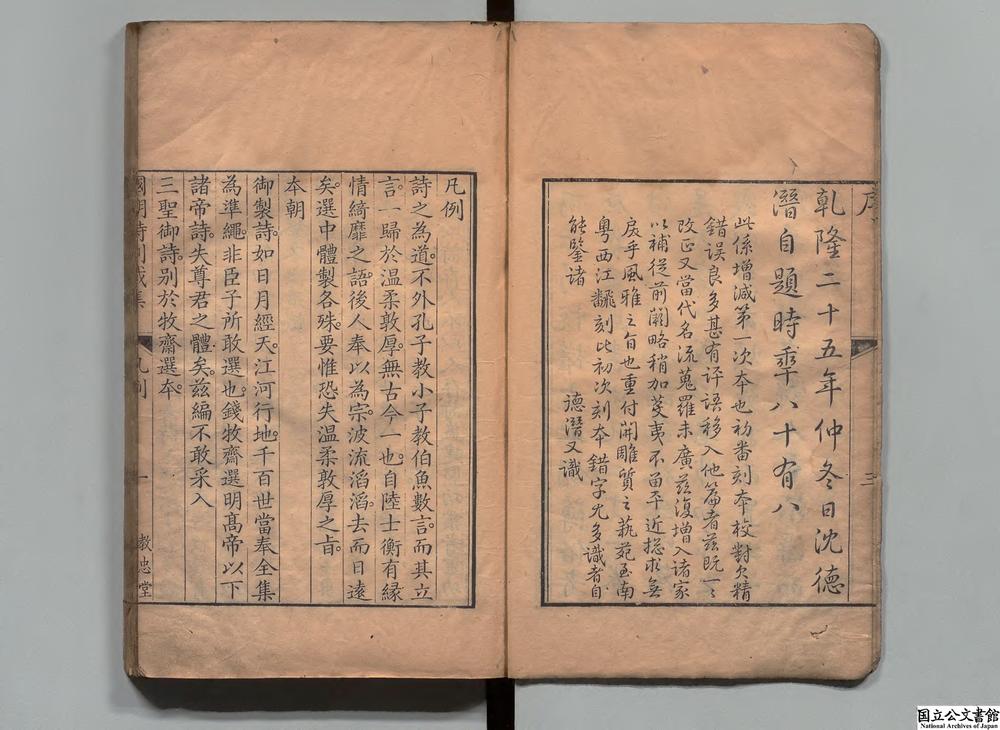 序
三
乾隆二十五年仲冬日沈德
潛自題時季八十有八
此係增減第一次本也初番刻本校對欠精
錯誤良多甚有評語移入他篇者茲既一〻
改正又當代名流蒐羅未廣茲復增入諸家
以補從前闕略稍加芟夷不留平近揔求無
戾乎風雅之旨也重付開雕質之蓺苑至南
粵西江翻刻此初次刻本錯字尤多識者自
能鑒諸
德潛又識
凡例
詩之為道。不外孔子教小子教伯魚數言。而其立
言。一歸於温柔敦厚。無古今一也。自陸士衡有緣
情綺靡之語。後人奉以為宗。波流滔滔。去而日遠
矣。選中體製各殊。要惟恐失温柔敦厚之旨。
本朝
御製詩。如日月經天。江河行地。千百世當奉全集
為準繩。非臣子所敢選也。錢牧齋選明高帝以下
諸帝詩。失尊君之體矣。茲編不敢采入
三聖御詩。別於牧齋選本。
國朝詩別裁集
凡例
一
教忠堂
国立公文書館
National Archives of Japan